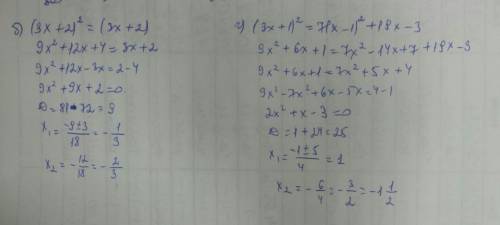 б) (3x+2)² = (3x+2)
9x²+12x+4=3x+2
9x²+12x-3x=2-4
9x²+9x+2=0
D=81-72=9
x₁=(-9±3)/18=-1/3
x₂=-12/18=-2/3
г) (3x+1)²=7(x-1)²+19x-3
9x²+6x+1=7x²-14x+7+19x-3
9x²+6x+1=7x²+5x+4
9x²-7x²+6x-5x=4-1
2x²+x-3=0
D=1+24=25
x₁=(-1±5)/4=1
x₂=-6/4=-3/2=-1 1/2